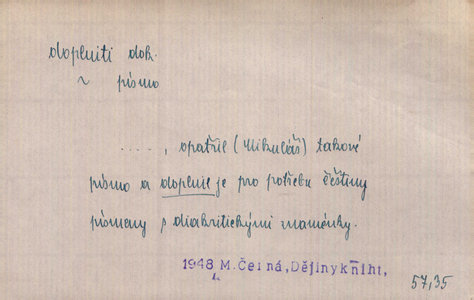 doplniti dok.
~ písmo
....., opatřil (Mikuláš) takové
písmo a doplnil je pro potřebu češtiny
písmany s diakritickými znaménky.
1948 M. Černá, Dějiny kniht,
57,35